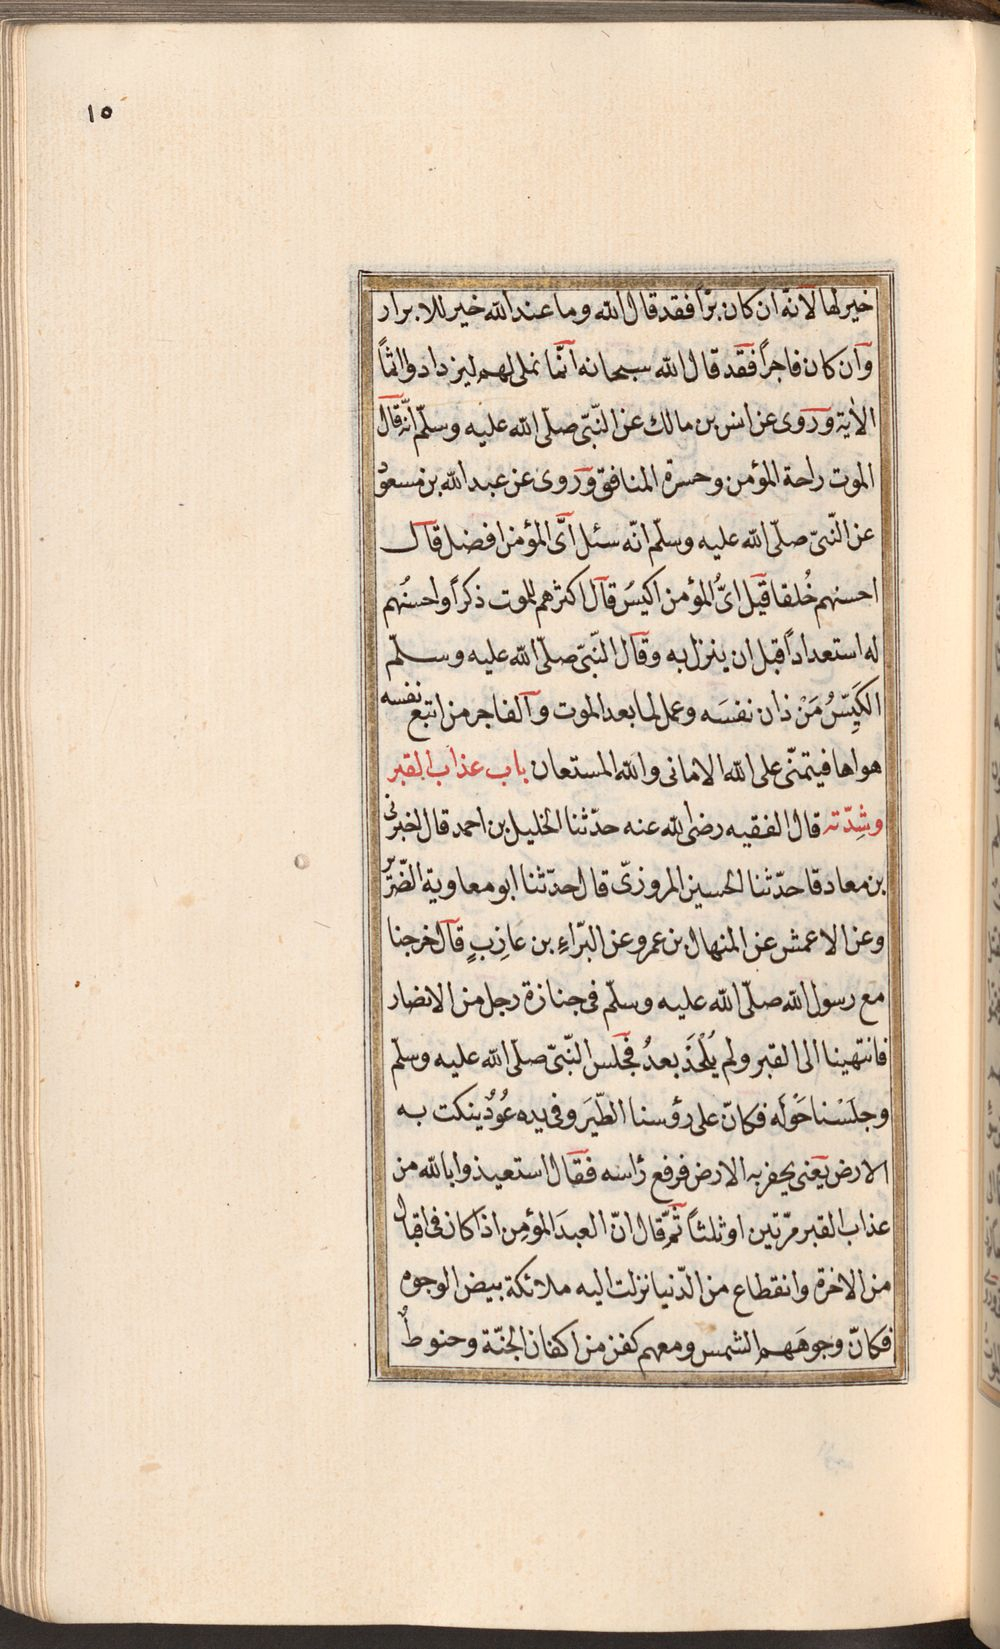 ١٥
خير لها لانّه ان كان برّا فقد قال الله وما عند الله خير للابرار
وان كان فاجراً فقد قال الله سبحانه انّما نملى لهم ليزدادوا اثماً
الاٰية وروى عن انس بن مالك عن النّبىّ صلّى الله عليه وسلّم انّه قال
الموت راحة المؤمن وحسرة المنافق وروى عن عبد الله بن مسعود
عن النّبىّ صلّى الله عليه وسلّم انّه سئل اىّ المؤمن افضل قال
احسنهم خُلقا قيل اىُّ المؤمن اكيسُ قال اكثرهم للموت ذكراً واحسنُهم
له استعداداً قبل ان ينزل به وقال النّبىّ صلّى الله عليه وسلّم
الكَيِّسُ مَنْ ذان نفسَه وعمل لما بعد الموت والفاجر من اتبع نفسه
هواها فيتمنّى على الله الامانى والله المستعان باب عذاب القبر
وشِدّته قال الفقيه رضى الله عنه حدّثنا الخليل بن احمد قال اخبرنى
بن معاد قا حدّثنا الحسين المروزىّ قال حدّثنا ابو معاوية الضّرير
وعن الاعمش عن المنهال بن عمرو عن البّراءِ بن عازِبٍ قال خرجنا
مع رسول الله صلّى الله عليه وسلّم فى جنازة رجل من الانضار
فانتهينا الى القبر ولم يُلْحَذ بعدُ فجلس النّبىّ صلّى الله عليه وسلّم
وجلَسْنا حَوْلَه فكانّ على رؤسنا الطّيَر وفى يده عُوُدٌ ينكت به
الارض يعنى يحفر به الارض فرفع رٔاسه فقال استعيذوا بالله من
عذاب القبر مرّتين او ثلثاً ثمّ قال انّ العبدَ المؤمِن اذا كان فى اقبال
من الاخرة وانقطاع من الدّنيا نزلت اليه ملائكة بيض الوجوه
فكانّ وجوهَهم الشمس ومعهم كفن من اكفان الجنّة وحنوطٌ